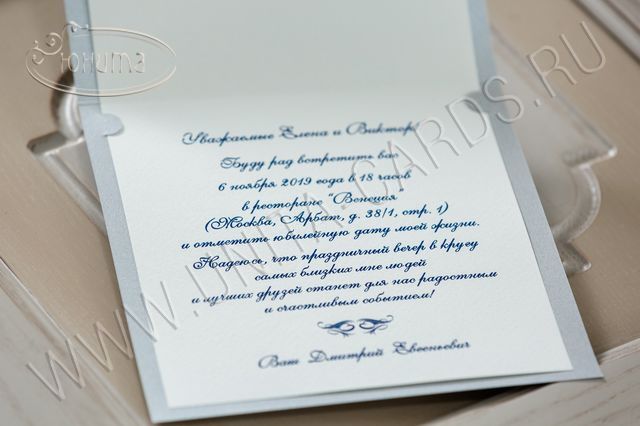 Юнита
Уважаемые Елена и Виктор!
Буду рад встретить вас
6 ноября 2019 года в 18 часов
в ресторане "Венеция"
(Москва, Арбат, д. 38/1, стр. 1)
и отметить юбилейную дату моей жизни.
Надеюсь, что праздничный вечер в кругу
самых близких мне людей
и лучших друзей станет для нас радостным
и счастливым событием!
Ваш Дмитрий Евгеньевич
WWW.UNITA-CARDS.RU